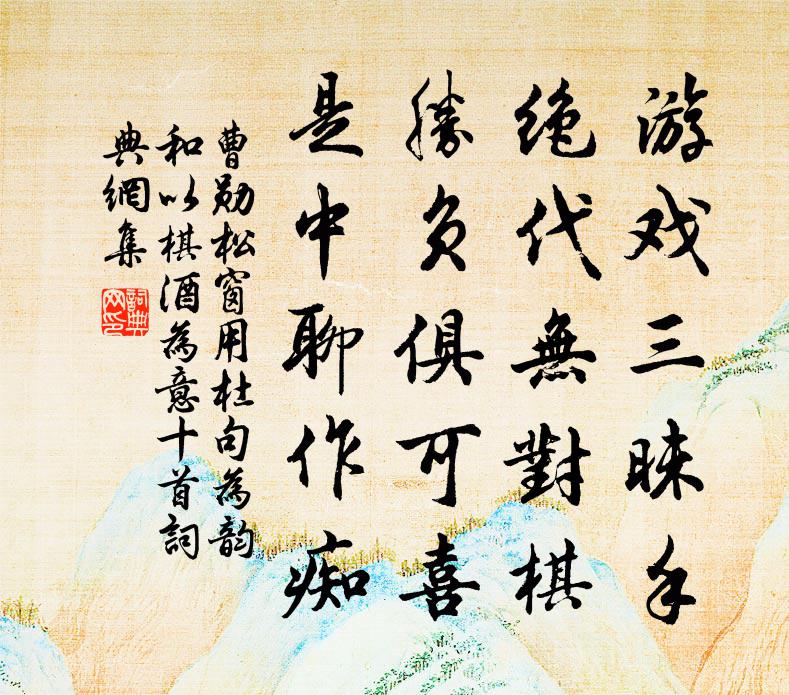 游戏三昧手
绝代無對棋
勝负俱可喜
是中聊作痴
曹勋松窗用杜句為韵
和以棋酒為意十首詞
典網集
詞典網印